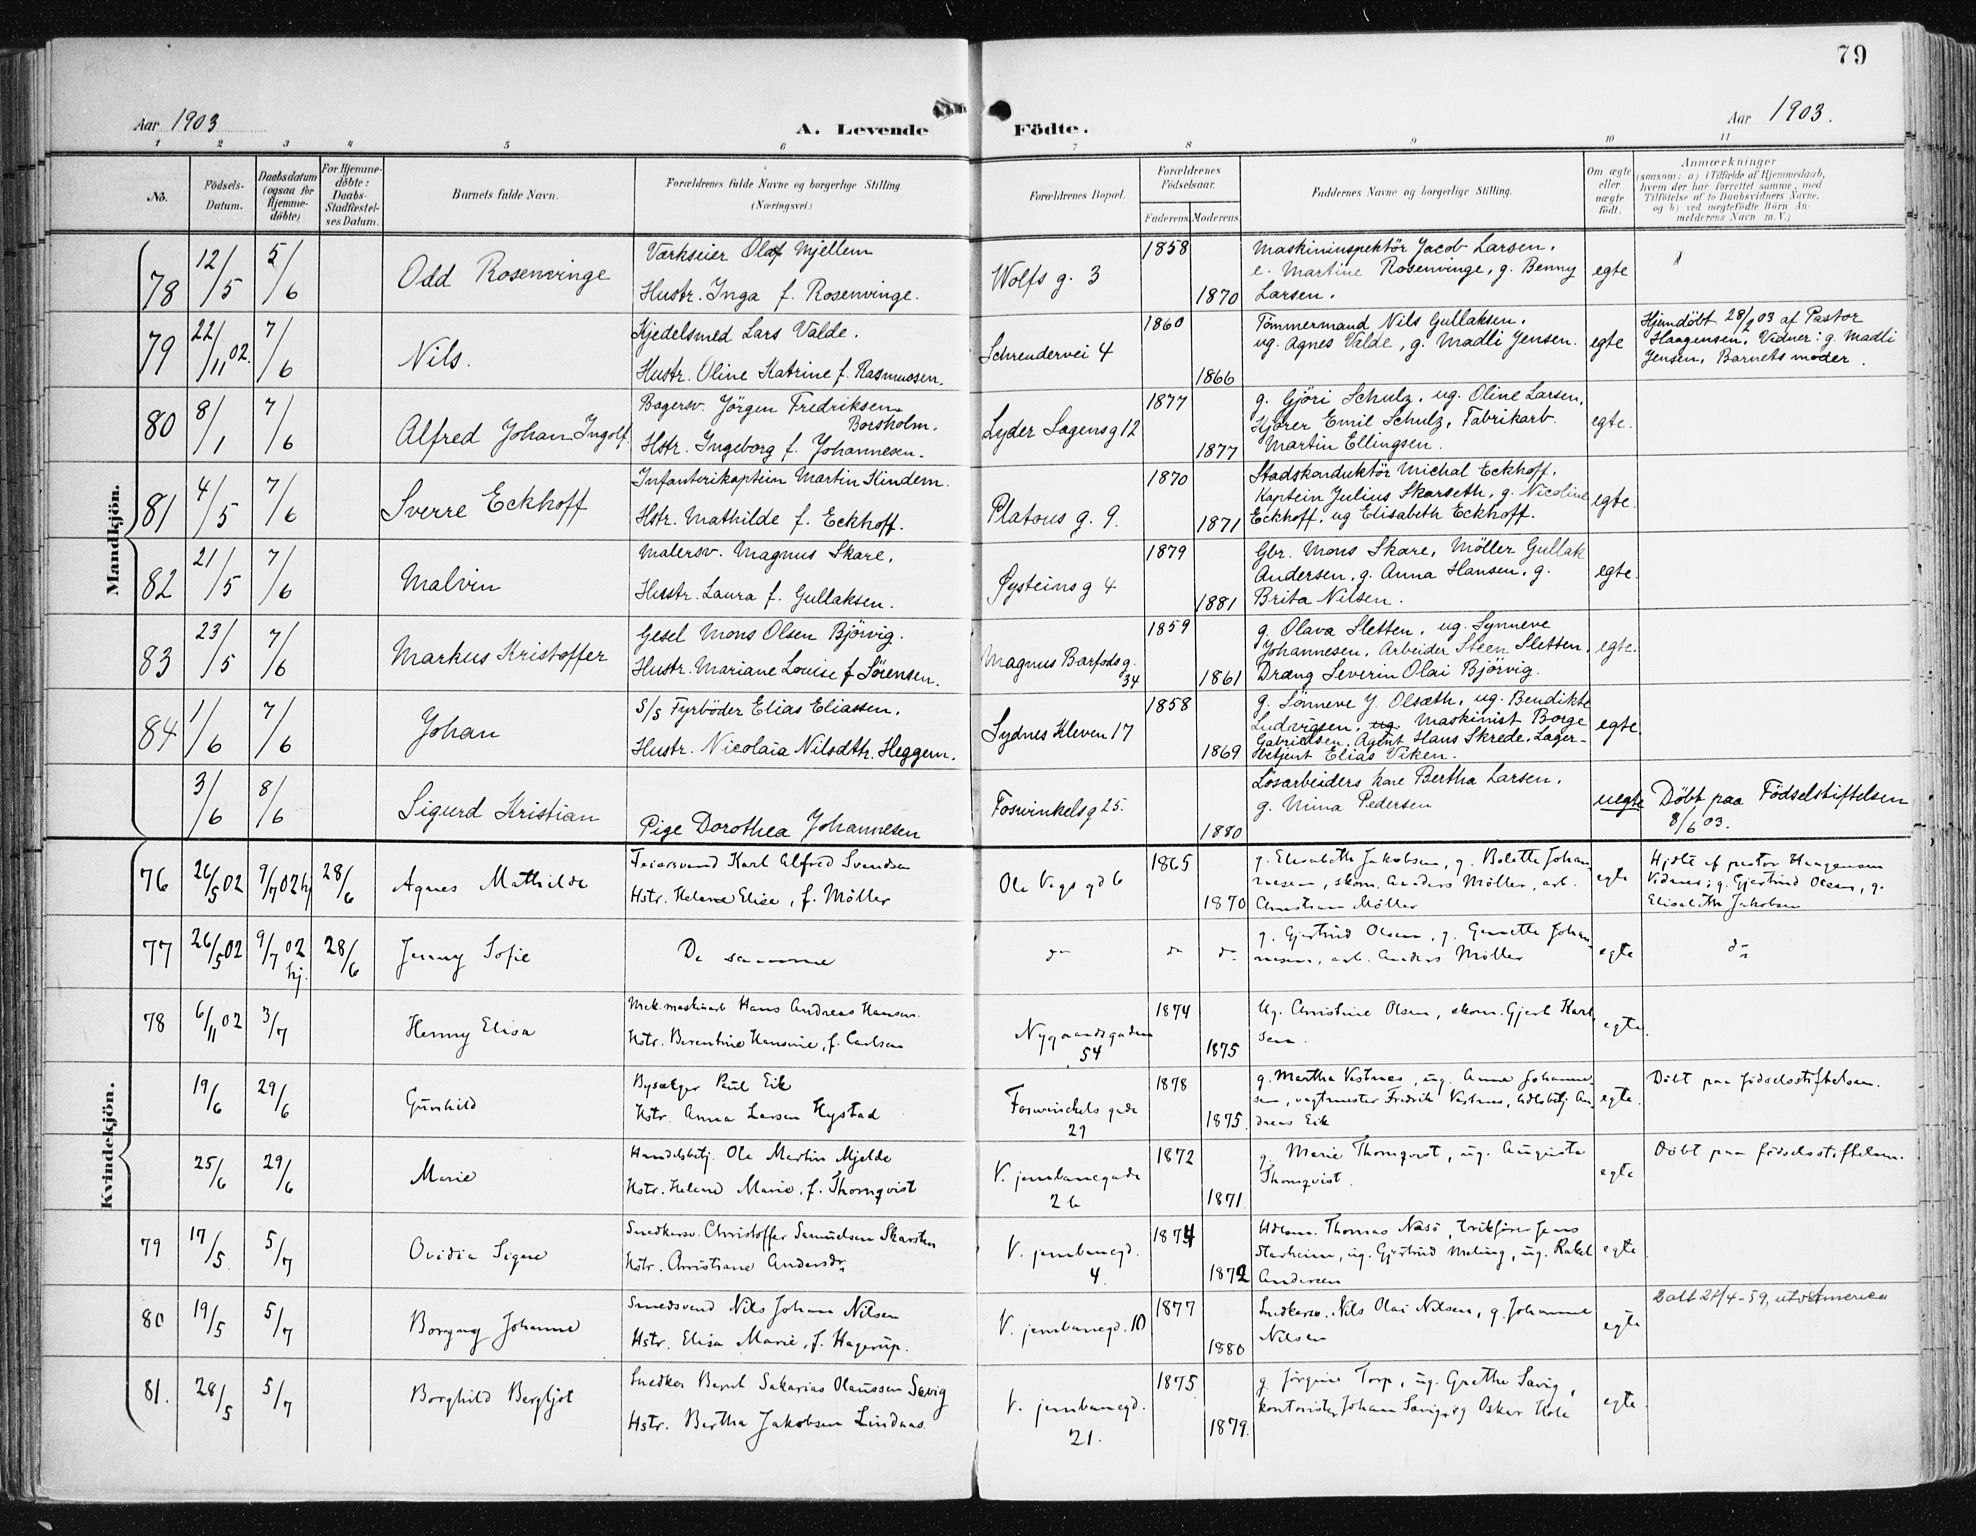 79
Aar 1903
A. Levende Födte.
Aar 1903.
1 2 3 4 5 6 7 8 9 10 11
No.
Födsels-
Datum.
Daabsdatum
(ogsaa for
Hjemme-
döbte)
For Hjemme-
döbte:
Daabs-
Stadfæstel-
ses Datum.
Barnets fulde Navn.
Forældrenes fulde Navne og borgerlige Stilling
(Næringsvei.)
Forældrenes Bopæl.
Forældrenes
Födselsaar.
Faderens Moderens
Faddernes Navne og borgerlige Stilling.
Om ægte
eller
uægte
födt.
Anmærkninger
(saasom: a) i Tilfælde af Hjemmedaab,
hvem der har forrettet samme, med
Tilföielse af to Daabsvidners Navne,
og b) ved uægtefödte Börn An-
melderens Navn m. V.)
Mandkjön.
78
12/5
5/6
Odd Rosenvinge
Værkseier Olaf Mjellem
Hustr. Inga f. Rosenvinge.
Wolfs g. 3
1858
1870
Maskininspektör Jacob Larsen.
e. Martine Rosenvinge, g. Benny
Larsen.
egte
79
22/11 02.
7/6
Nils.
Kjedelsmed Lars Valde.
Hustr. Oline Katrine f. Rasmussen.
Schrendervei 4
1860
1866
Tömmermand Nils Gullaksen.
ug. Agnes Valde, g. Madli Jensen.
egte
Hjemdöbt 28/2 03 af Pastor
Haagensen. Vidner: g. Madli
Jensen, Barnets moder.
80
8/1
7/6
Alfred Johan Ingolf.
Bagersv. Jörgen Fredriksen
Borsholm.
Hstr. Ingeborg f. Johannesen.
Lyder Sagens g 12
1877
1877
g. Gjöri Schulz, ug. Oline Larsen,
Kjører Emil Schulz, Fabrikarb.
Martin Ellingsen.
egte.
81
4/5
7/6
Sverre Eckhoff
Infanterikaptein Martin Kindem.
Hstr. Mathilde f. Eckhoff.
Platous g. 9.
1870
1871
Stadskonduktör Michal Eckhoff,
Kaptein Julius Skarseth, g. Nicoline
Eckhoff, ug Elisabeth Eckhoff.
egte.
82
21/5
7/6
Malvin
Malersv. Magnus Skare,
Husstr. Laura f. Gullaksen.
Øysteins g 4
1879
1881
Gbr. Mons Skare, Möller Gullak
Andersen, g. Anna Hansen, g.
Brita Nilsen.
egte.
83
23/5
7/6
Markus Kristoffer
Gesel Mons Olsen Björvig.
Hustr. Mariane Louise f Sörensen.
Magnus Barfods g.
34
1859
1861
g. Olava Sletten, ug. Synneve
Johannesen, Arbeider Steen Sletten,
Dræng Severin Olai Björvig.
egte.
84
1/6
7/6
Johan
S/S Fyrböder Elias Eliassen.
Hustr. Nicolaia Nilsdtr. Heggem.
Sydnes Kleven 17
1858
1869
g. Sönneve J. Olsæth, ug. Bendikte
Ludvigsen, ug. Maskinist Borge
Gabrielsen, Agent Hans Skrede, Lager-
betjent Elias Viken.
egte.
3/6
8/6
Sigurd Kristian
Pige Dorothea Johannesen
Foswinkelsg 25.
1880
Lösarbeiders kone Bertha Larsen,
g. Mina Pedersen
uegte
Döbt paa Födselstiftelsen
8/6 03.
Kvindekjön.
76
26/5 02
9/7 02 hj
28/6
Agnes Mathilde
Feiersvend Karl Alfred Svendsen
Hstr. Helene Elise, f. Möller
Ole Vigs gd 6
1865
1870
g. Elisabeth Jakobsen, g. Bolette Johan-
nesen, skom. Anders Möller, arb.
Christian Möller
egte
Hjdbt af pastor Haagensen
Vidner: g. Gjertrud Olsen, g.
Elisabeth Jakobsen
77
26/5 02
9/7 02
hj.
28/6
Jenny Sofie
De samme
do
do
do
g. Gjertrud Olsen, g. Johan-
nesen, arb. Anders Möller
egte
do
78
6/11 02
3/7
Henny Elisa
Mek. maskinarb. Hans Andreas Hansen
Hstr. Berentine Hansine, f. Carlsen
Nygaardsgaden
54
1874
1875
Ug. Christine Olsen, skom. Gjert Karl-
sen.
egte.
19/6
29/6
Gunhild
Bysælger Paul Eik
Hstr. Anna Larsen Nystad
Foswinckels gade
29
1878
1875.
g. Martha Vestnes, ug. Anna Johanne-
sen, vagtmester Fredrik Vestnes, An-
dreas Eik
egte.
Döbt paa födselsstiftelsen.
25/6
29/6
Marie
Handelsbetj. Ole Martin Mjelde
Hstr. Helene Marie, f. Thornqvist
V. jernbanegade
26
1872
1871
g. Marie Thornqvist, ug. Augusta
Thornqvist.
egte
Döbt paa födselsstiftelsen.
79
17/5
5/7
Ovidia Signe
Snedkersv. Christoffer Samuelsen Skarsten
Hstr. Christiane Andersdr.
V. jernbanegd.
4.
1874
1872
Thomas Næsö, Jens
Starheim, ug. Gjertrud Meling, ug. Rakel
Andersen
egte.
80
19/5
5/7
Borgny Johanne
Smedsvend Nils Johan Nilsen
Hstr. Elisa Marie, f. Hagerup.
V. jernbanegd. 10
1877
1880
Snedkersv. Nils Olai Nilsen, g. Johanne
Nilsen
egte
2 att 21/4-59, utv. Amerika
81.
28/5
5/7
Borghild Bergljot
Snedker Bernt Sakarias Olaussen Sævig
Hstr. Bertha Jakobsen Lindaas.
V. jernbanegd.
21.
1875
1879.
g. Jörgine Torp, ug. Grethe Sævig,
kontorister Johan Sævig og Oskar
egte.